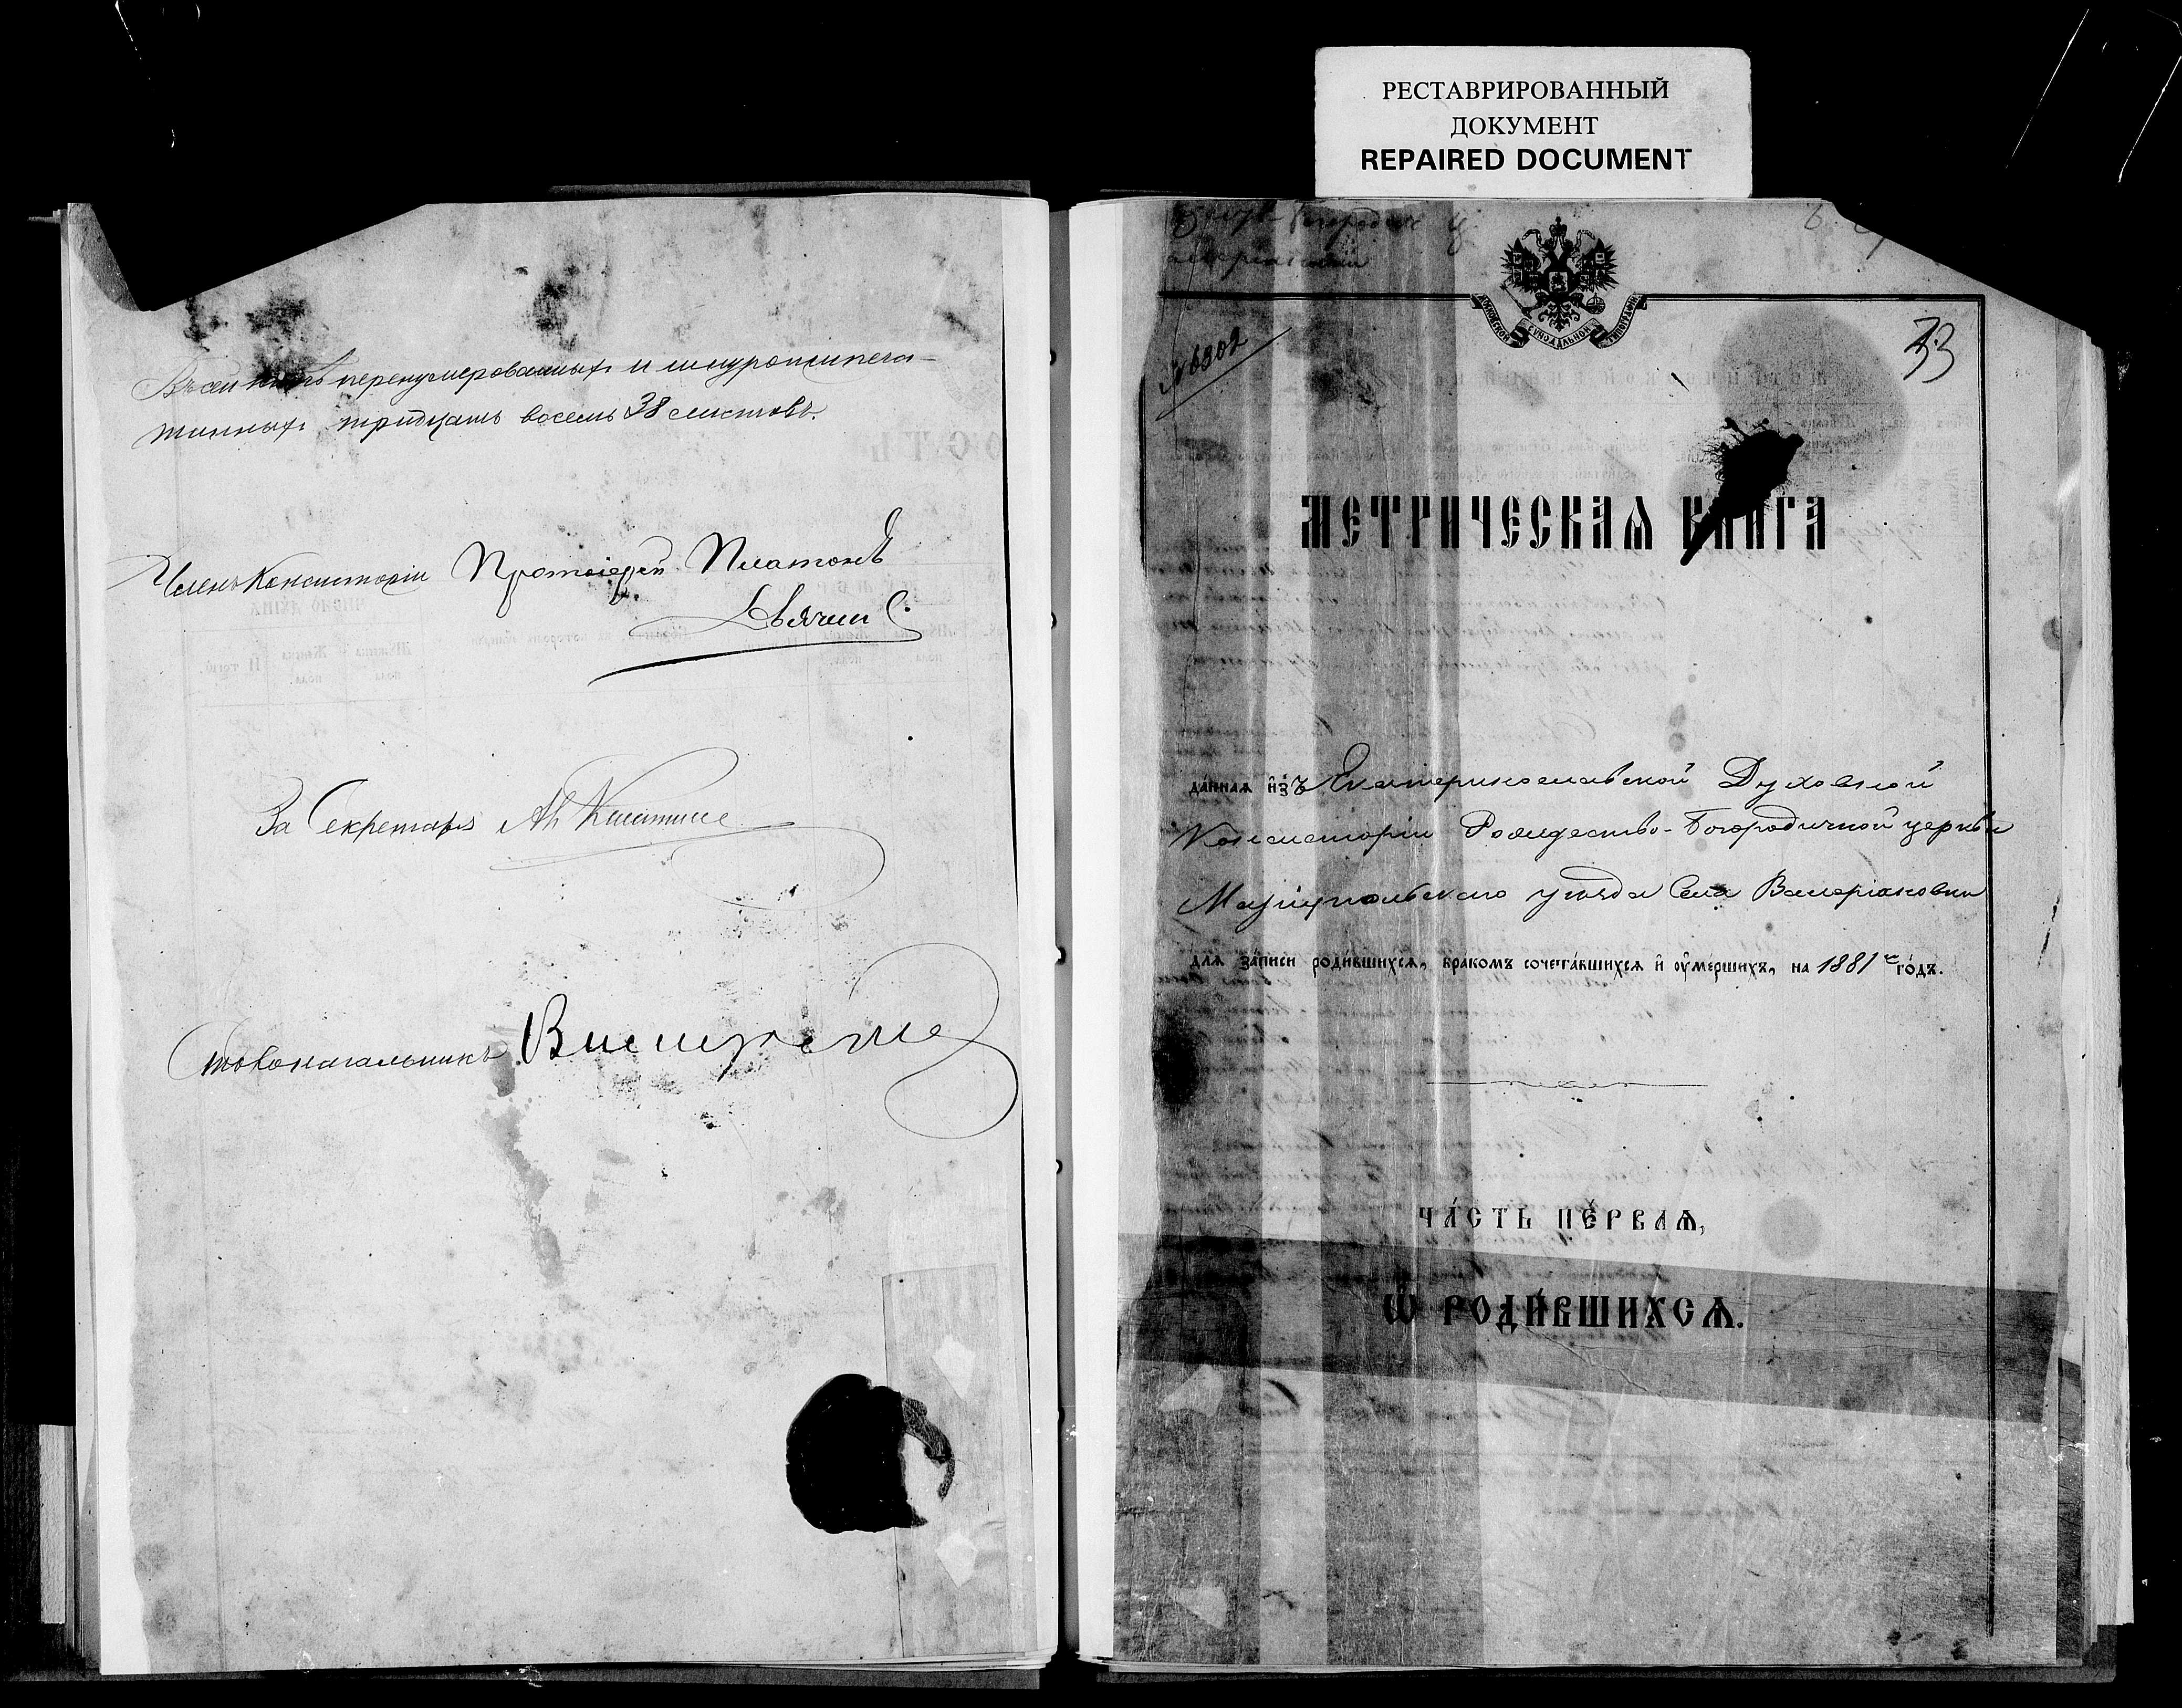 РЕСТАВРИРОВАННЫЙ
ДОКУМЕНТ
REPAIRED DOCUMENT
Въ сей книгѣ перенумерованныхъ и шнуроприпеча-
танныхъ тридцать восемь 38 листовъ.
Членъ Консисторіи Протоіерей Платонъ
За Секретаря
Столоначальникъ
№ 6302
МОСКОВСКОЙ СУНОДАЛЬНОЙ ТИПОГРАФІИ
33
МЕТРИЧЕСКАѦ КНИГА
да́ннаѧ и҆зъ Екатеринославской Духовной
Консисторіи Рождество-Богородичной церкви
Маріупольскаго уѣзда Села Валеріановки
длѧ за́писи роди́вшихсѧ, бракомъ сочета́вшихсѧ и҆ оу҆ме́ршихъ, на 1881 го́дъ.
ЧА́СТЬ ПЕ́РВАѦ,
Ѡ РОДИ́ВШИХСѦ.